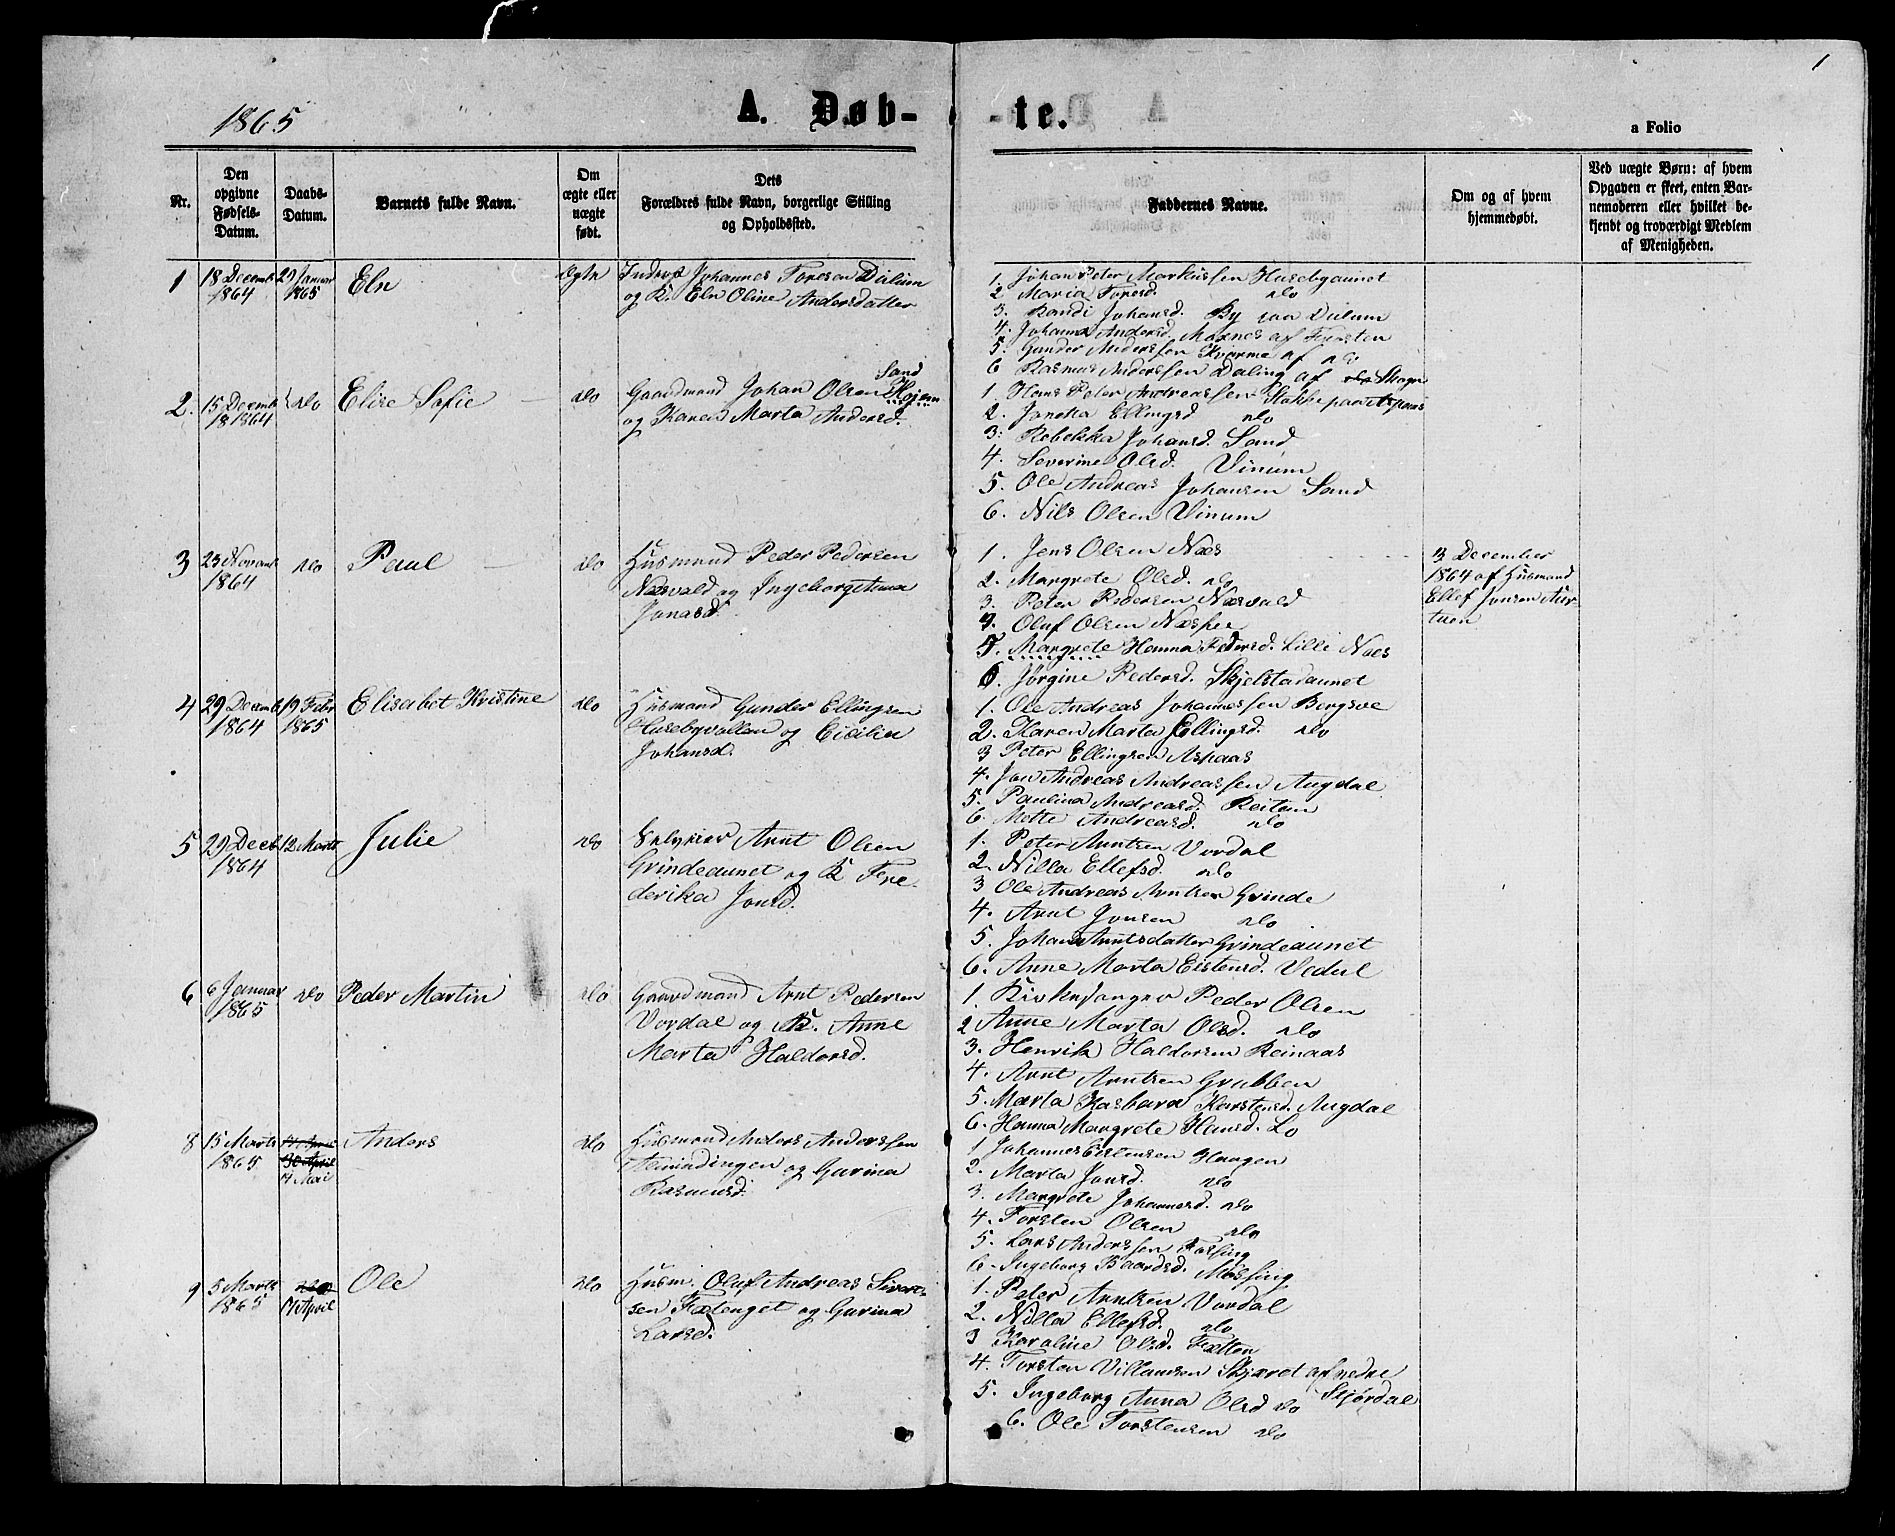 1
1865
A. Døb-
-te.
a Folio
Nr.
Den opgivne Fødsels-Datum.
Daabs-Datum.
Barnets fulde Navn.
Om ægte eller uægte født.
Dets Forældres fulde Navn, borgerlige Stilling og Opholdssted.
Faddernes Navne.
Om og af hvem hjemmedøbt.
Ved uægte Børn: af hvem Opgaven er skeet, enten Barnemoderen eller hvilket bekjendt og troværdigt Medlem af Menigheden.
1
18 Decemb 1864
29 Januar 1865
Eln
ægte
Johannes Toresen Dalum
og K. Eln Oline Andersdatter
1. Johan Peter Markussen Husebyaunet
2 Maria Toresd. do
3. Randi Johansd. By paa Dalum
4. Johanna Andersd. Moxnes af
5. Gunder Anderssen Kvarme af do
6 Rasmus Anderssen Daling af Skogn
2.
15 Decemb 1864
do
Elise Sofie
do
Sand
Gaardmand Johan Olsen Højem
og Karen Marta Andersd.
1. Hans Peter Andreassen Stokke paa Aspaas
2. Janeka Ellingsd do
3: Rebekka Johansd. Sand
4. Severine Olsd. Vinum
5. Ole Andreas Johansen Sand
6. Nils Olsen Vinum
3
23 Novemb 1864
do
Paul
do
Husmand Peder Pedersen
Næsvald og Ingeborg Anna
Jonasd.
1. Jens Olsen Næs
2. Margrete Olsd. do
3. Peter Pedersen Næsvald
4. Oluf Olsen
5. Margrete Hanna Pedersd. Lille Næs
6. Jørgine Pedersd. Skjelstadaunet
3 December
1864 af Husmand
Ellef Jonsen Aur-
tuen
4
29 Decemb 1864
19 Febr 1865
Elisabet Kristine
do
Husmand Gunder Ellingsen
Husebyvollan og Cicilia
Johansd.
1. Ole Andreas Johannessen Bergsve
2. Karen Marta Ellingsd. do
3 Peter Ellingsen Aspaas
4. Jon Andreas Andreassen Augdal
5. Paulina Andreasd. Reitan
6. Mette Andreasd. do
5
29 Decb 1864
12 Marts
Julie
do
Selveier Arnt Olsen
Grindeaunet og K Fre-
derika Jonsd.
1. Peter Arntsen Vordal
2. Nilla Ellefsd. do
3 Ole Andreas Arntsen Grinde
4. Arnt Jonsen do
5. Johan Arntsdatter Grindeaunet
6. Anne Marta Eistensd. Vedul
6
6 Januar 1865
do
Peder Martin
do
Gaardmand Arnt Pedersen
Vordal og K. Anne
Marta Haldorsd.
1. Kirkesanger Peder Olsen
2 Anne Marta Olsd. do
3. Henrik Haldorsen Reinaas
4. Arnt Arntsen Grubben
5. Marta Barbara Karstensd. Augdal
6. Hanna Margrete Hansd. Lo
8
15 Marts 1865
30 April
7 Mai
Anders
do
Husmand Anders Anderssen
og Gurina
Rasmusd.
1 Johannes Eistensen Haugen
2. Marta Jonsd. do
3. Margrete Johannesd. do
4. Torsten Olsen do
5. Lars Anderssen Fossing
6. Ingeborg Baardsd. Møssing
9
5 Marts 1865
do
17 April
Ole
do
Husm. Oluf Andreas Sivert-
sen Fætenget og Gurina
Larsd.
1. Peter Arntsen Vordal
2. Nilla Ellefsd. do
3 Karoline Olsd. Fætten
4. Torsten Villumsen Skjervet af nedre
Stjørdal
5. Ingeborg Anna Olsd do
6. Ole Torstensen do